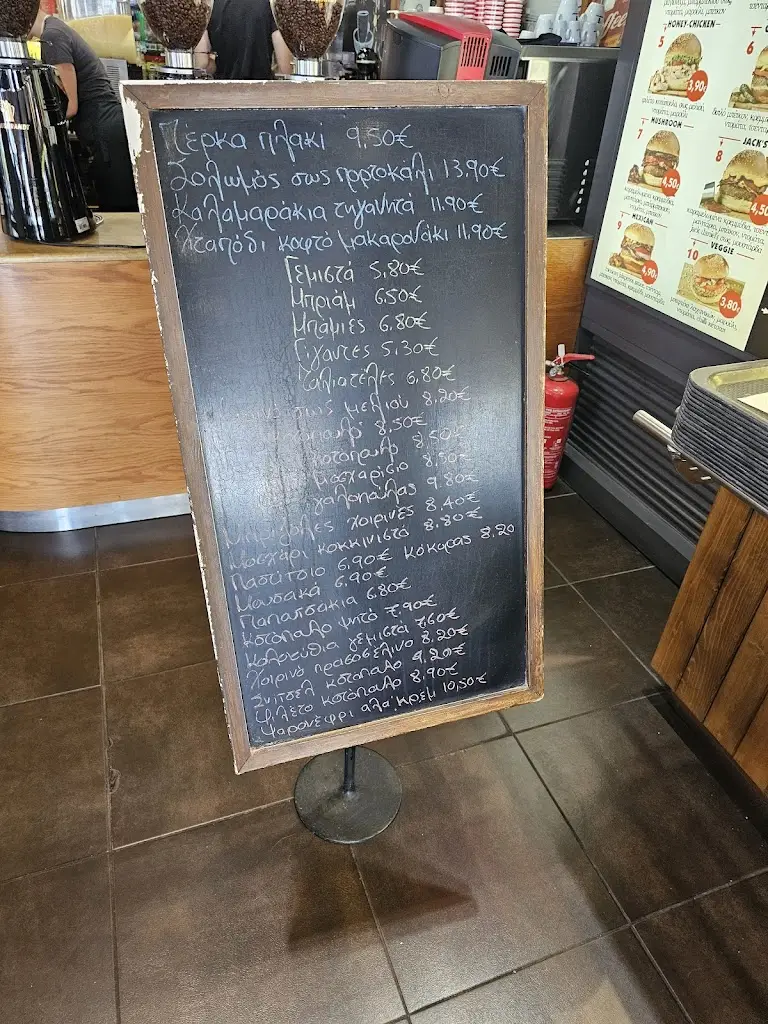 Πέρκα πλακί 9,50€
Σολωμός σως πορτοκάλι 13,90€
Καλαμαράκια τηγανητά 11,90€
Χταπόδι κοφτό μακαρονάκι 11,90€
Γεμιστά 5,80€
Μπριάμ 6,50€
Μπάμιες 6,80€
Γίγαντες 5,30€
Ταλιατέλες 6,80€
σως μελιού 8,20€
8,50€
κοτόπουλο 8,50€
μοσχαρίσιο 8,50€
γαλοπούλας 9,80€
Μπριζόλες χοιρινές 8,40€
Μοσχάρι κοκκινιστό 8,80€
Παστίτσιο 6,90€ κόκορας 8,20
Μουσακά 6,90€
Παπουτσάκια 6,80€
Κοτόπουλο ψητό 7,90€
Κολοκύθια γεμιστά 7,60€
Χοιρινό πρασοσέλινο 8,20€
Σνίτσελ κοτόπουλο 9,20€
Φιλέτο κοτόπουλο 8,90€
Ψαρονέφρι αλα κρεμ 10,50€
HONEY-CHICKEN
5
3,90€
6
MUSHROOM
7
4,50€
JACK'S
8
4,50
MEXICAN
9
4,90€
VEGGIE
10
3,80€